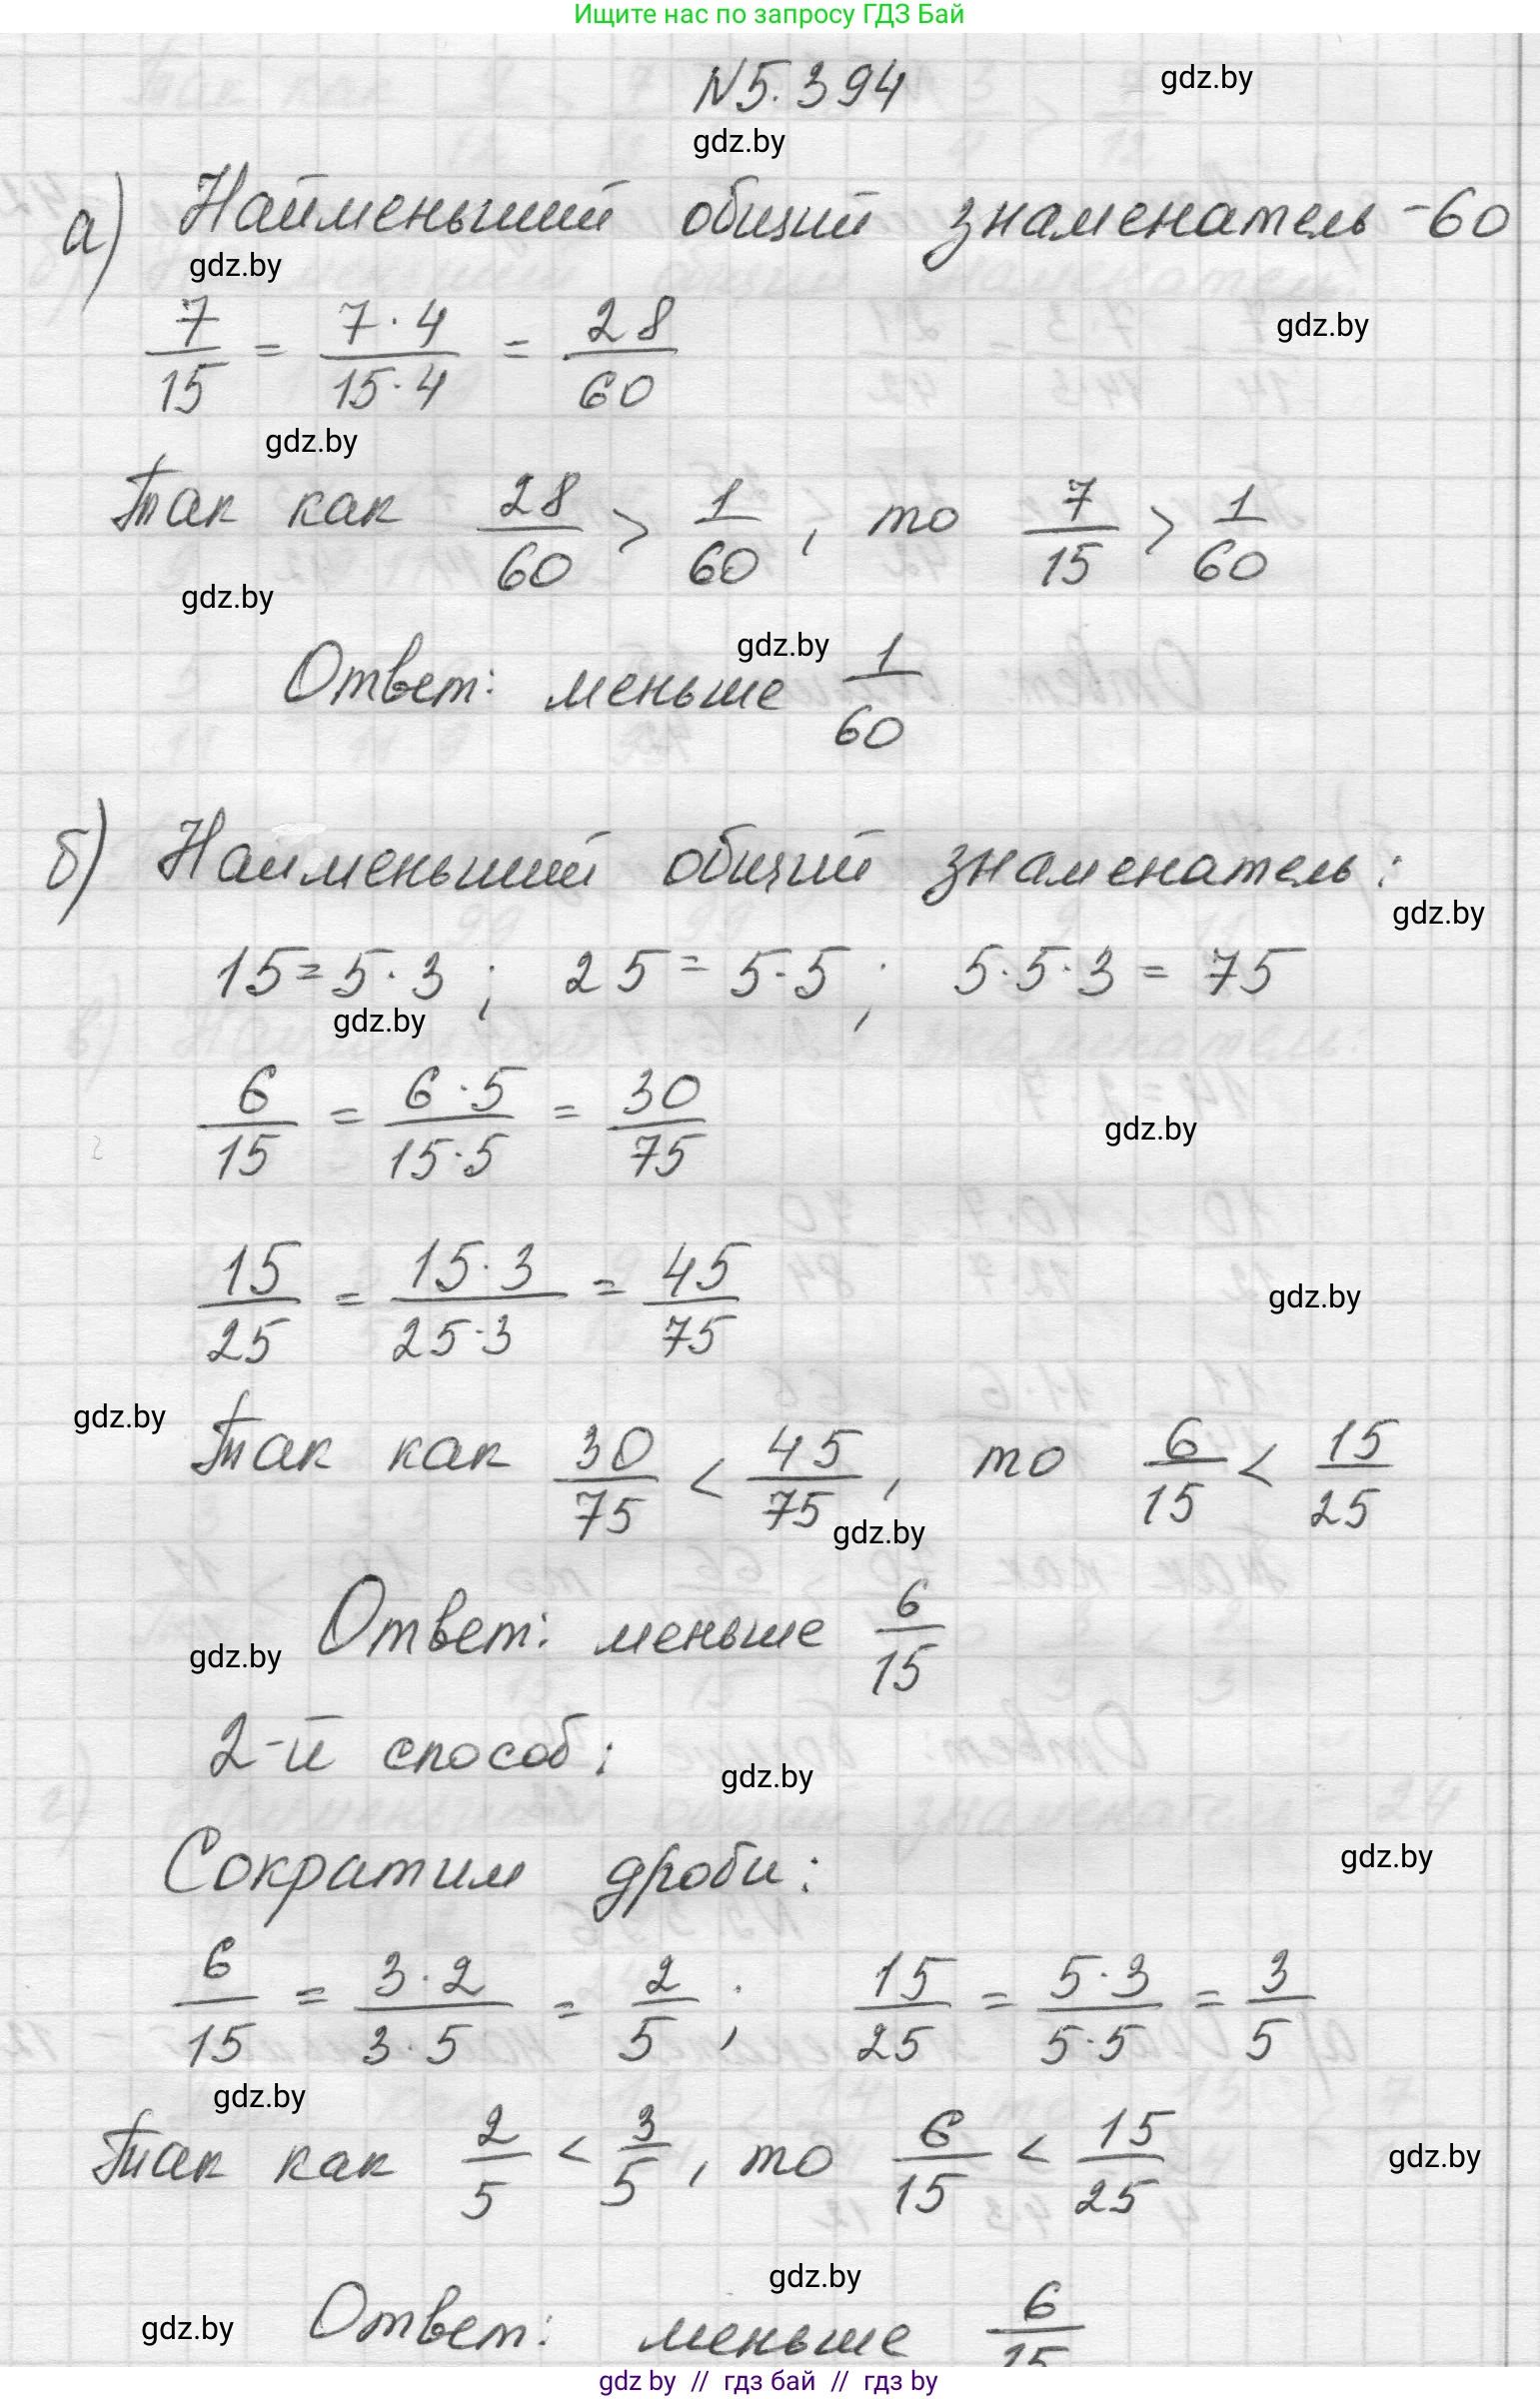 Ищите нас по запросу ГДЗ Бай
N5.394
gdz.by
gdz.by
а) Найменьший общий знаменатель -60
gdz.by
7/15 = 7·4/15·4 = 28/60
gdz.by
gdz.by
Так как 28/60 > 1/60, то 7/15 > 1/60
gdz.by
gdz.by
Ответ: меньше 1/60
б) Найменьший общий знаменатель:
gdz.by
15=5·3; 25=5·5; 5·5·3=75
gdz.by
6/15 = 6·5/15·5 = 30/75
gdz.by
15/25 = 15·3/25·3 = 45/75
gdz.by
gdz.by
Так как 30/75 < 45/75, то 6/15 < 15/25
gdz.by
Ответ: меньше 6/15
gdz.by
2-й способ:
gdz.by
Сократим дроби:
gdz.by
6/15 = 3·2/3·5 = 2/5; 15/25 = 5·3/5·5 = 3/5
gdz.by
Так как 2/5 < 3/5, то 6/15 < 15/25
gdz.by
gdz.by
Ответ: меньше 6/15
gdz.by
gdz by // гдз бай // гдз by